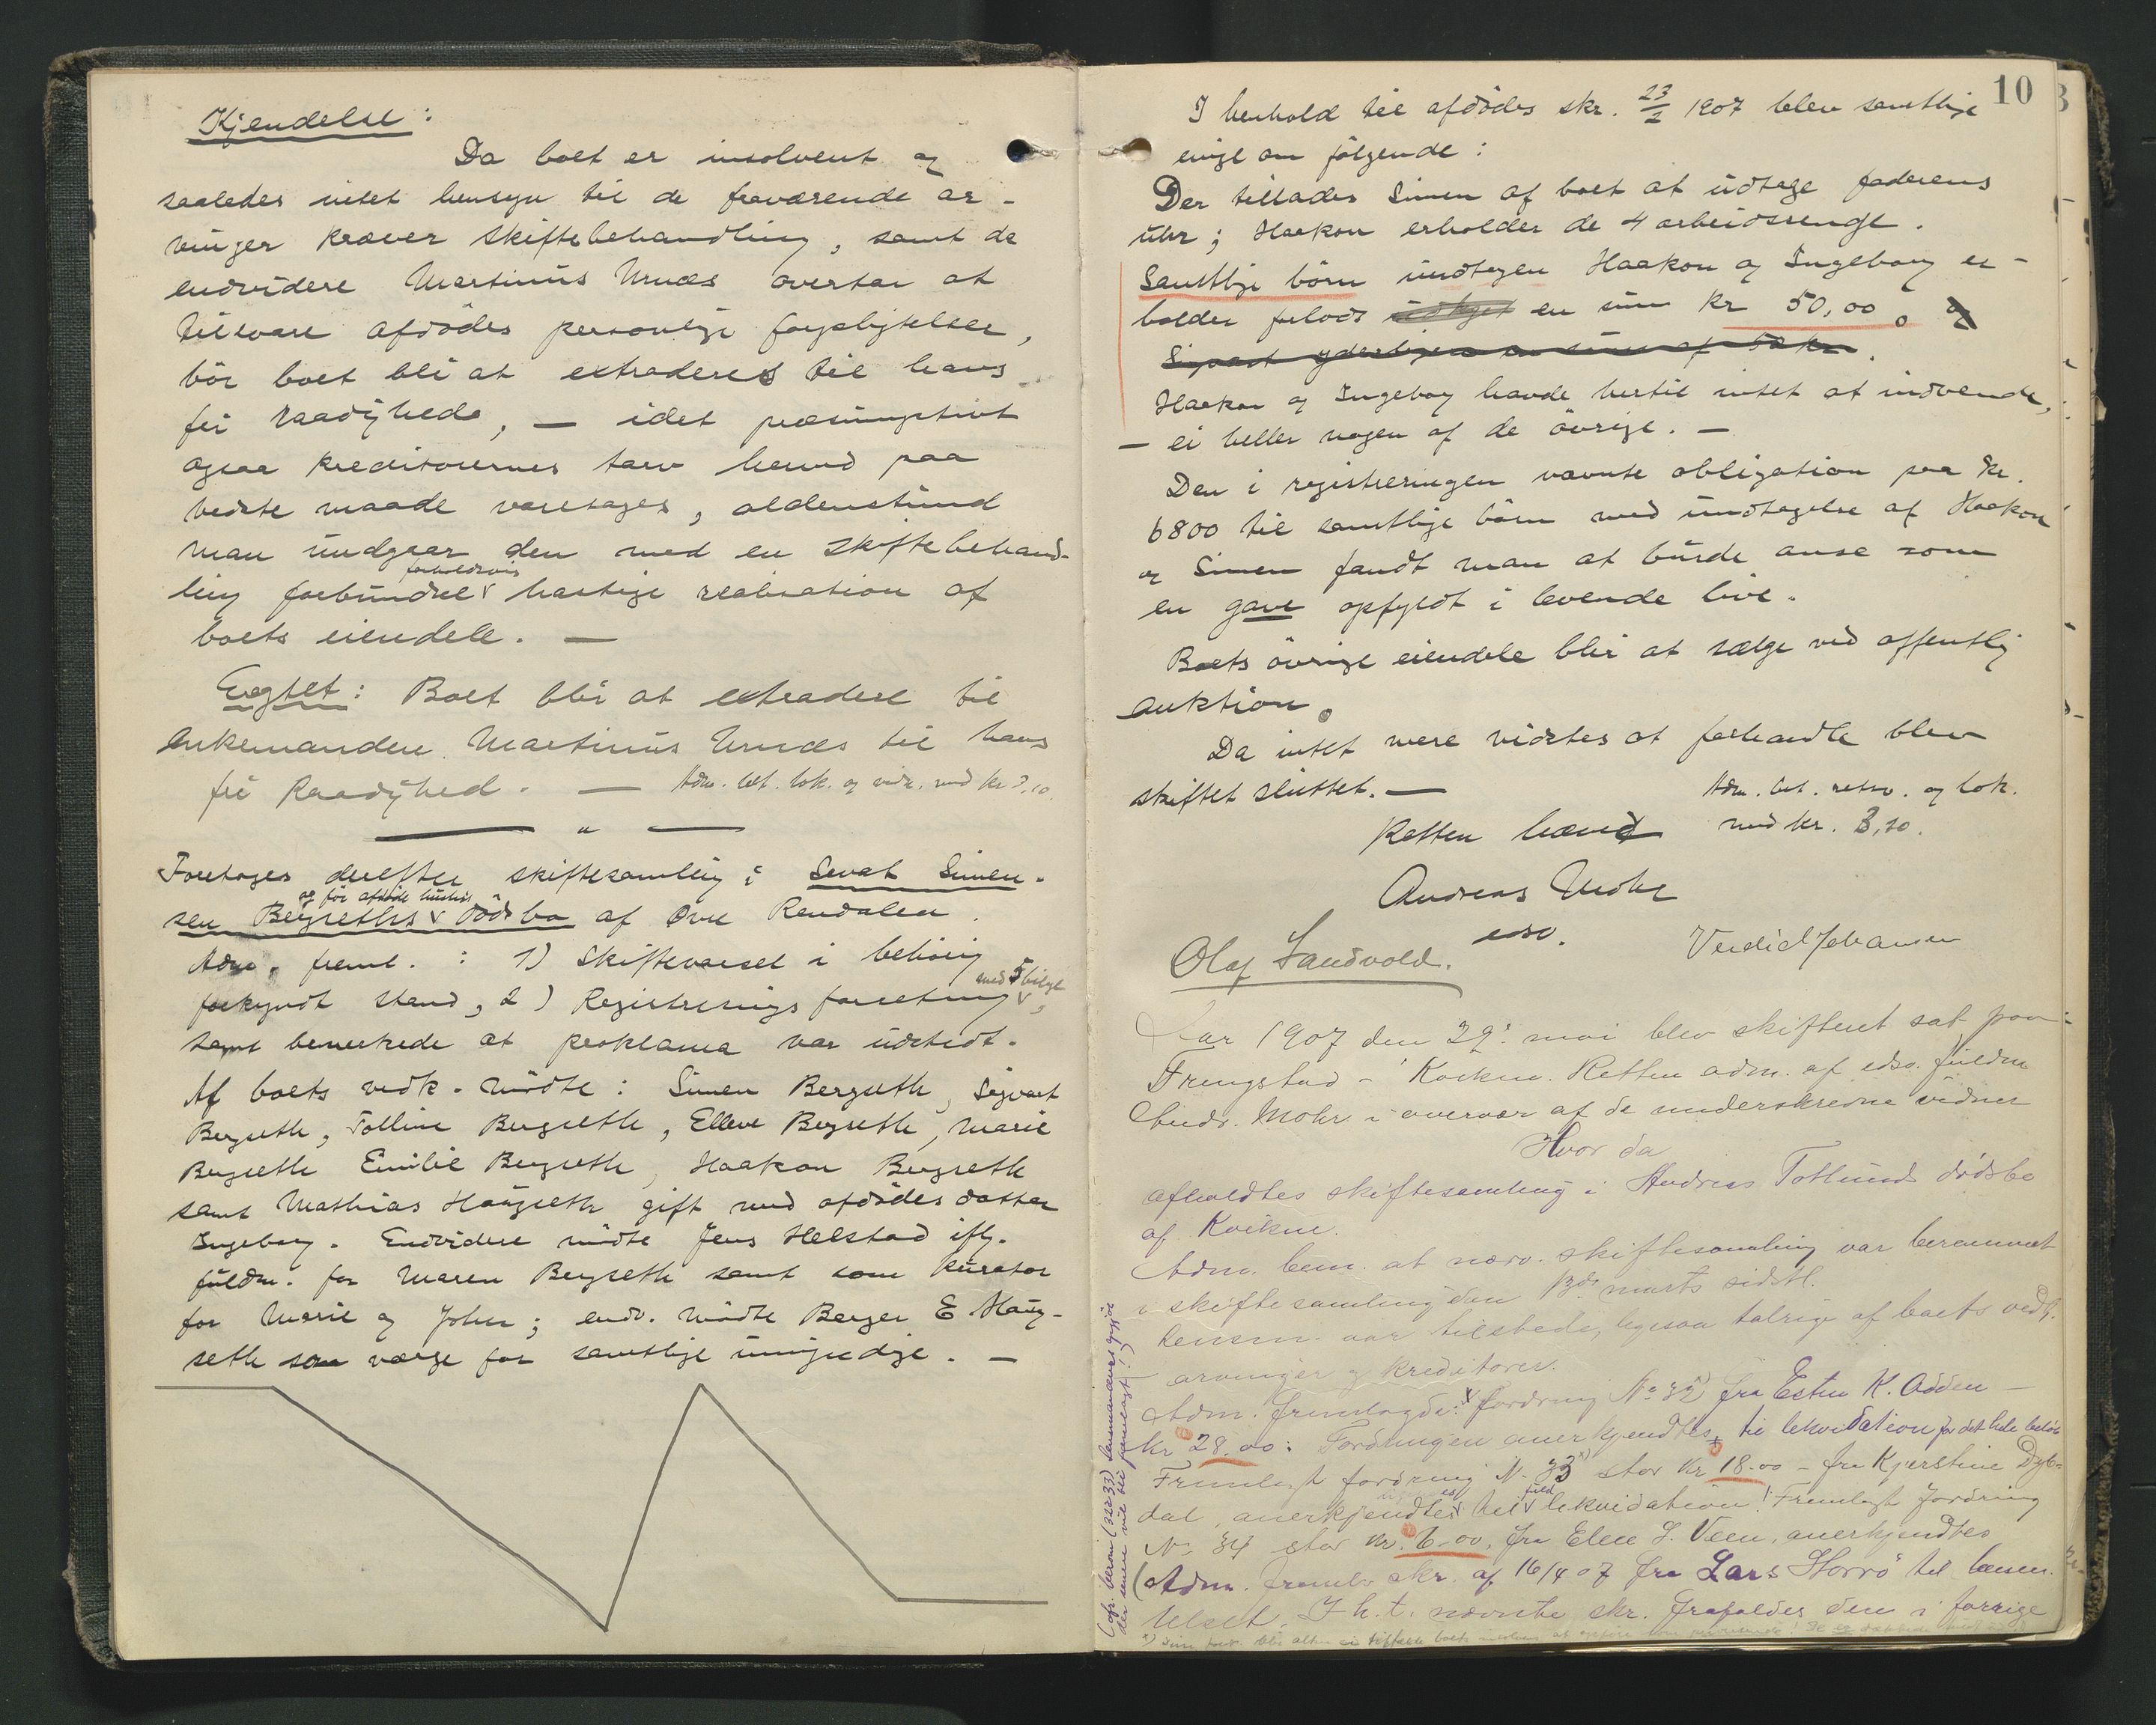 Kjendelse:
Da boet er insolvent og
saaledes intet hensyn til de fraværende ar-
vinger kræver skiftebehandling, samt da
endvidere Martinus Urnæs overtar at
tilsvare afdødes personlige forpligtelser,
bør boet bli at extraderes til hans
fri raadighed, — idet præsumptivt
ogsaa kreditorernes tarv herved paa
bedste maade varetages, aldenstund
man undgaar den med en skiftebehand-
ling forbundne forholdsvis hastige realisation af
boets eiendele. —
Eragtet: Boet blir at extradere til
enkemanden Martinus Urnæs til hans
fri Raadighed. — Adm. bet. lok. og vidn. med kr 3,10.
— " —
Foretages derefter skiftesamling i Sevat Simen-
sen Bergseths og før afdøde hustrus dødsbo af Øvre Rendalen.
Adm. freml.: 1) Skiftevarsel i behørig
forkyndt stand, 2) Registrerings forretning med 5 bilage,
samt bemerkede at proklama var udstedt.
Af boets vedk. mødte: Simen Bergseth, Sigvart
Bergseth, Folline Bergseth, Elleve Bergseth, Marie
Bergseth Emilie Bergseth, Haakon Bergseth
samt Mathias Haugseth gift med afdødes datter
Ingeborg. Endvidere mødte Jens Helstad iflg.
fuldm. for Maren Bergseth samt som kurator
for Marie og Johan; endv. mødte Berger E Haug-
seth som værge for samtlige umyndige. —
10
I henhold til afdødes skr. 23/2 1907 blev samtlige
enige om følgende:
Der tillades Simen af boet at udtage faderens
uhr; Haakon erholder de 4 arbeidssenge.
Samtlige børn undtagen Haakon og Ingeborg er-
holder forlods en sum kr 50,00. og
Sigvart yderligere en sum af
Haakon og Ingeborg havde hertil intet at indvende,
— ei heller nogen af de øvrige. —
Den i registreringen nævnte obligation paa kr.
6800 til samtlige børn med undtagelse af Haakon
og Simen fandt man at burde anse som
en gave opfyldt i levende live.
Boets øvrige eiendele blir at sælge ved offentlig
auktion.
Da intet mere vidstes at forhandle blev
skiftet sluttet. —
Adm. bet. retsv. og lok.
med kr. 3,10.
Retten hævet
Andreas Mohr
edsv.
Olaf Sandvold.
Aar 1907 den 29: mai blev skifteret sat paa
Frengstad - Kvikne. Retten adm. af edsv. fuldm
Andr. Mohr i overvær af de underskrevne vidner
Hvor da
afholdtes skiftesamling i Andreas Totlunds dødsbo
af Kvikne.
Adm. bem. at nærv. skiftesamling var berammet
i skiftesamling den 13de marts sidstl.
Lensm. var tilstede, ligesaa talrige af boets vedk.
arvinger og kreditorer.
Adm. fremlagde: fordring No 32) fra Esten K. Odden —
kr 28.00: Fordringen anerkjendtes til likvidation for det hele beløb
Fremlagt fordring N. 33 stor kr 18.00 - fra Kjerstine Dyb-
dal, anerkjendtes til fuld likvidation! Fremlagt fordring
N. 34 stor kr. 6.00. fra Elen J. Veen, anerkjendtes
(Adm. fremlv skr. af 16/4 07 fra Lars Horrø til lensm.
I h. t. nævnte skr. frafaldes den i forrige